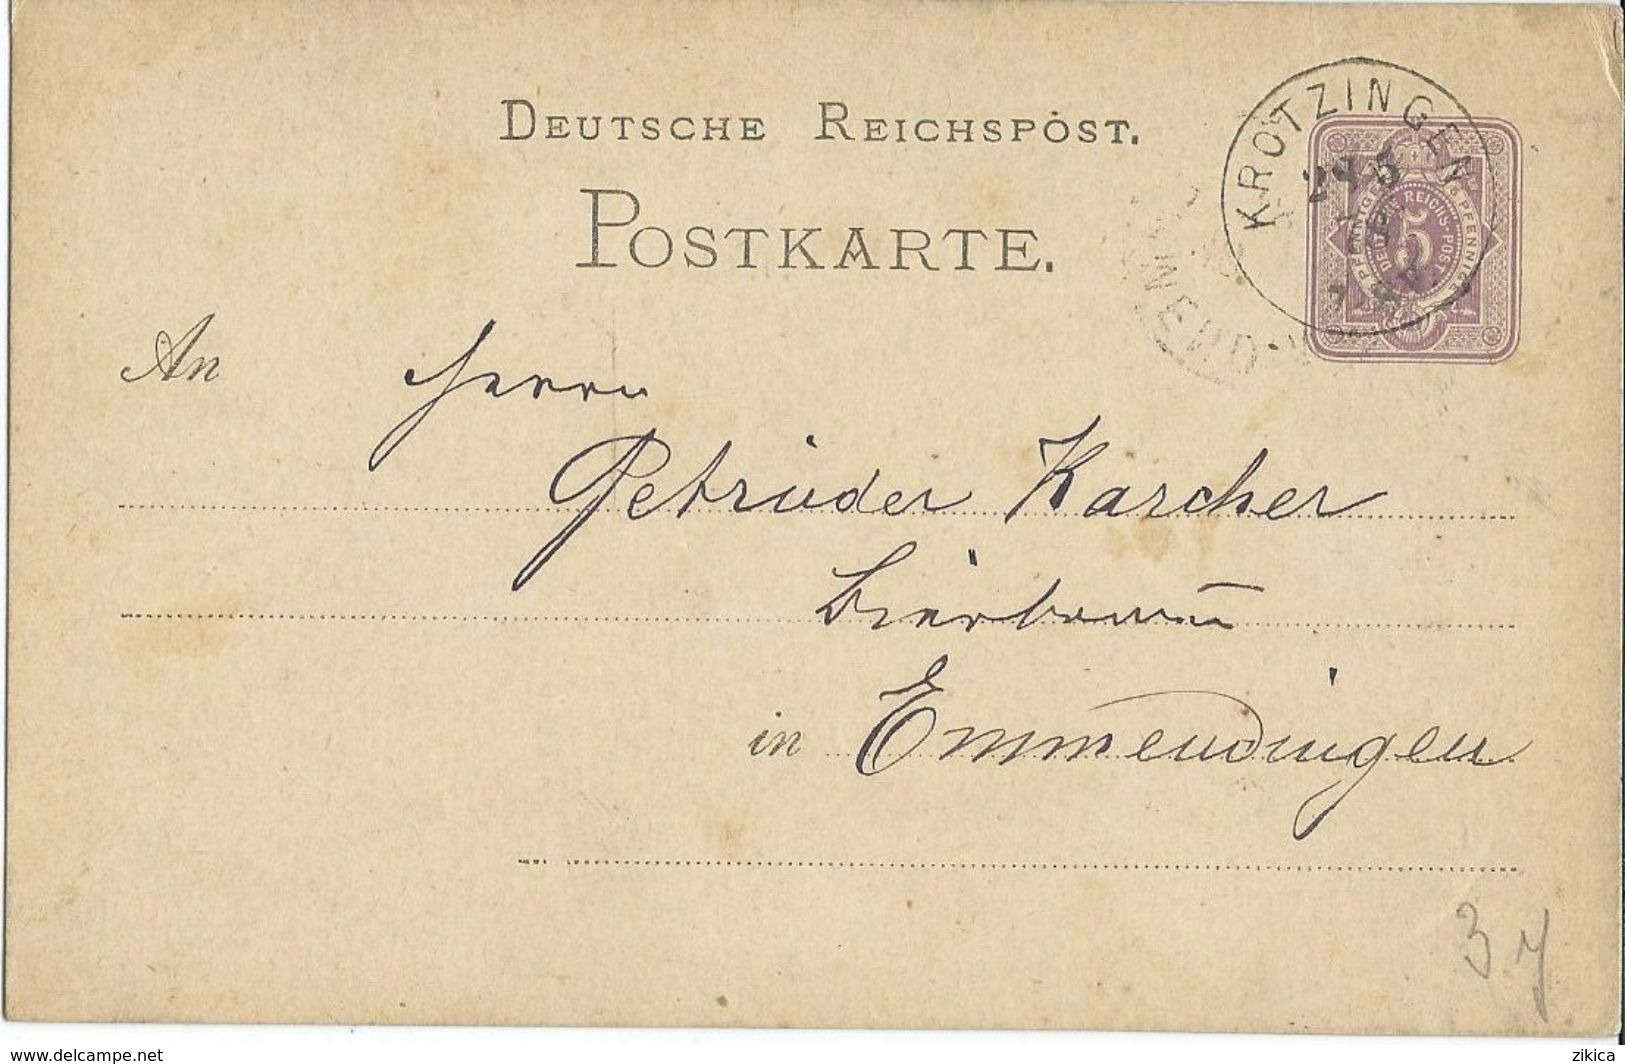 DEUTSCHE REICHSPOST.
POSTKARTE.
KROTZINGEN
28 5
5
DEUTSCHE REICHS-POST
PFENNIGE
An Herrn
Karcher
in Emmendingen
3 y
www.delcampe.net
zikica